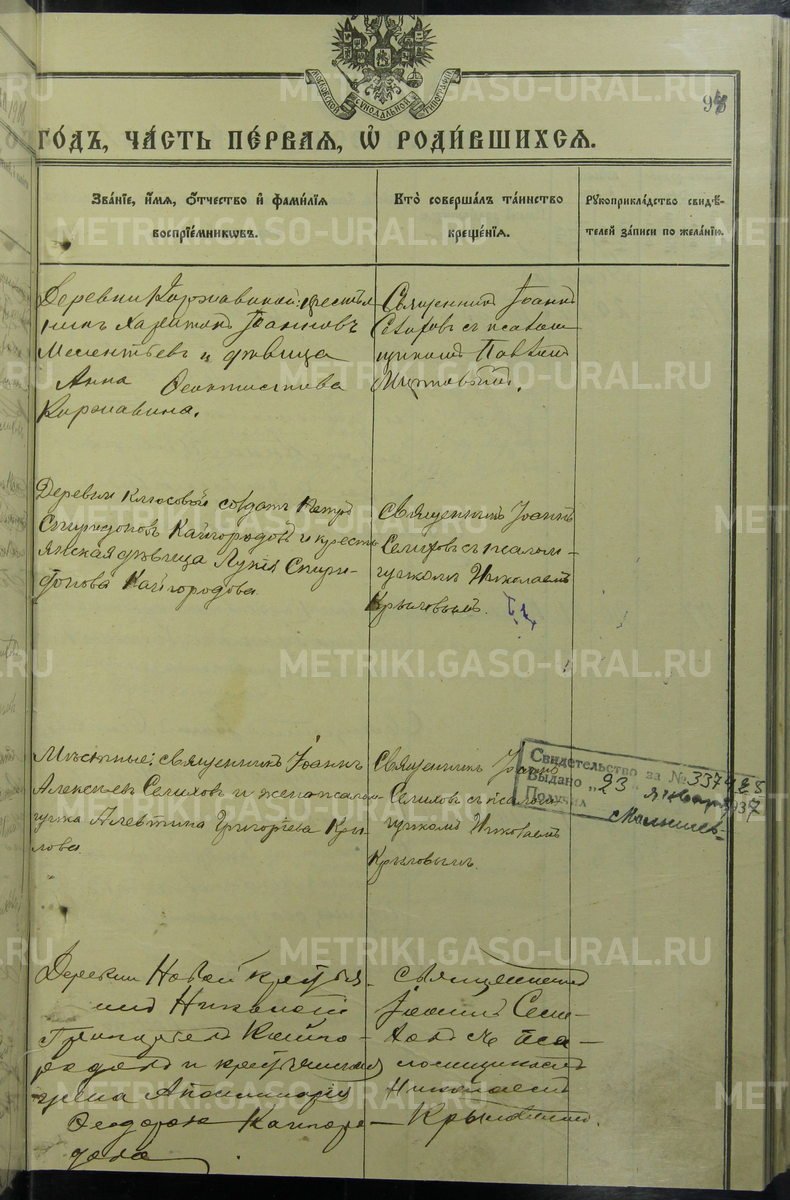 МОСКОВСКОЙ СѴНОДАЛЬНОЙ ТИПОГРАФІИ
93
го́дъ, ча́сть пе́рвая, ѡ҆ роди́вшихсѧ.
Зва́нїе, и҆́мѧ, ѻ҆́тчество и҆ фами́лїѧ
воспрїе́мникѡвъ.
Кто̀ соверша́лъ та́инство
креще́нїѧ.
Рꙋкоприкла́дство свидѣ́-
телей за́писи по жела́нїю.
Деревни Коржавиной: крестья
нинъ Харитонъ Іоанновъ
Мелентьевъ и дѣвица
Анна Феоктистова
Коржавина.
Священникъ Іоаннъ
съ псалом
щикомъ Павломъ
Деревни Ключовой солдатъ Петръ
Спиридоновъ Кайгородовъ и кресть
янская дѣвица Лукія Спири-
донова Кайгородова
Священникъ Іоаннъ
Селиховъ съ псалом-
щикомъ Николаемъ
Крыловымъ.
Мѣстные: священникъ Іоаннъ
Алексѣевъ Селиховъ и жена псалом
щика Алевтина Григоріева Кры-
лова.
Священникъ Іоаннъ
Селиховъ съ псалом
щикомъ Николаемъ
Крыловымъ.
Свидетельство за № 337
Выдано „23" января 1937
Получил
Деревни Новой крестья-
нинъ
Григорьевъ Кайго-
родовъ и крестьянская
Аполлинарія
Феодорова Кайгоро-
дова
Священникъ
Іоаннъ Сели-
ховъ съ пса-
ломщикомъ
Николаемъ
Крыловымъ.
METRIKI.GASO-URAL.RU